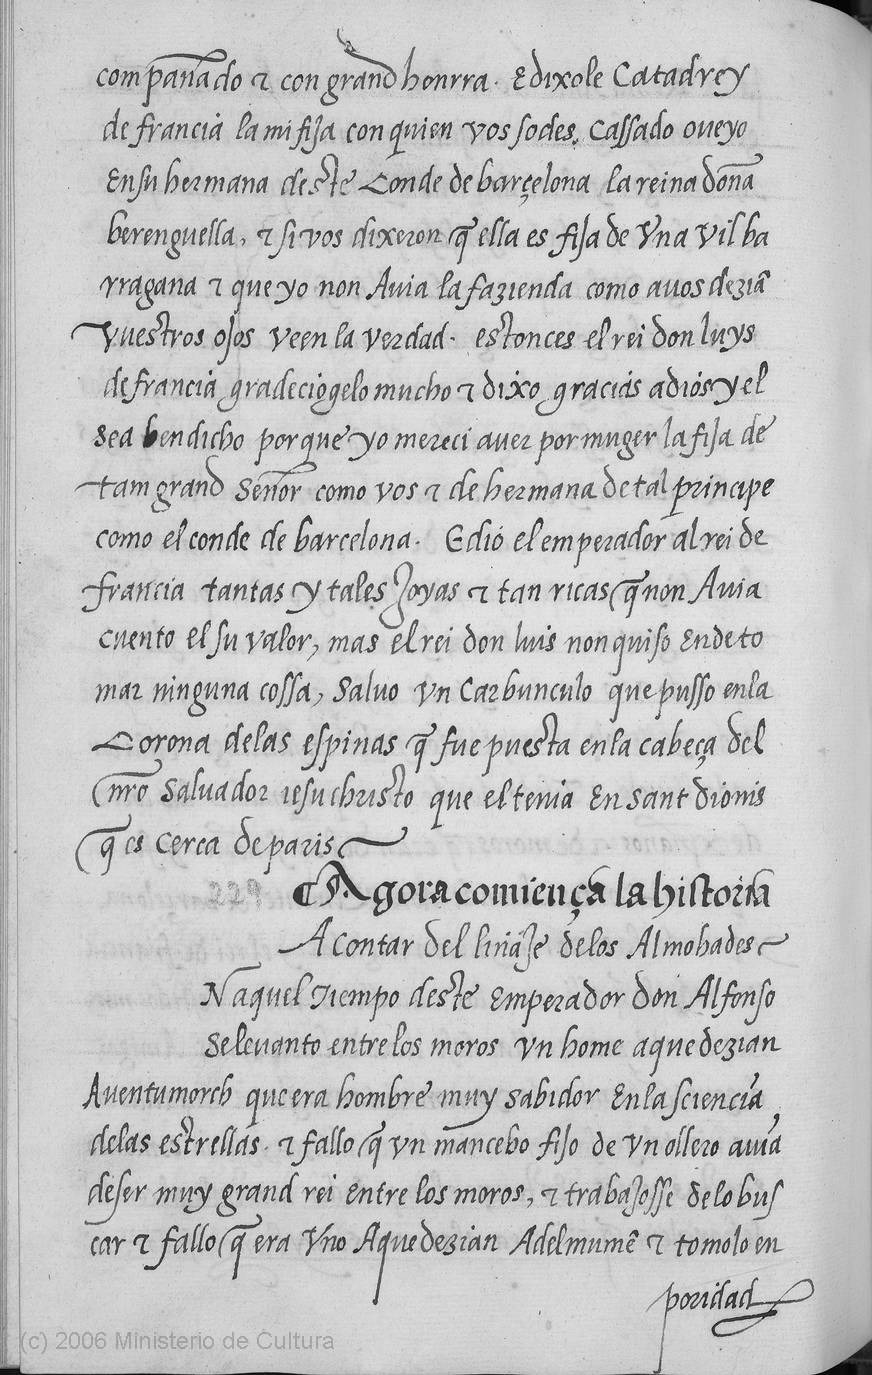 compañado & con grand honrra. E dixole Catad rey
de francia la mi fija con quien vos sodes, Cassado ove yo
En su hermana deste Conde de barçelona la reina doña
berenguella, & si vos dixeron q̃ ella es fija de Vna Vil ba
rragana & que yo non Avia la fazienda como avos deziã
Vuestros ojos veen la verdad. estonces el rei don luys
de francia gradeciogelo mucho & dixo gracias adios y el
sea bendicho porque yo mereci aver por muger la fija de
tam grand Señor como vos & de hermana de tal principe
como el conde de barcelona. E dió el emperador al rei de
francia tantas y tales Joyas & tan ricas q̃ non Avia
cuento el su valor, mas el rei don luis non quiso Ende to
mar ninguna cossa, Salvo vn Carbunculo que pusso en la
Corona de las espinas q̃ fue puesta en la cabeça del
nr̃o Salvador iesu christo que el tenia En sant dionis
q̃ es cerca de paris
229 ¶ Agora comiença la historia
A contar del linaje de los Almohades
Naquel Tiempo deste Emperador don Alfonso
Se levanto entre los moros vn home aque dezian
Aventumorch que era hombre muy sabidor En la sciencia
de las estrellas. & fallo q̃ vn mancebo fijo de Vn ollero avia
de ser muy grand rei Entre los moros, & trabajosse de lo bus
car & fallo q̃ era Vno Aque dezian Adelmumẽ & tomolo en
poridad
(c) 2006 Ministerio de Cultura